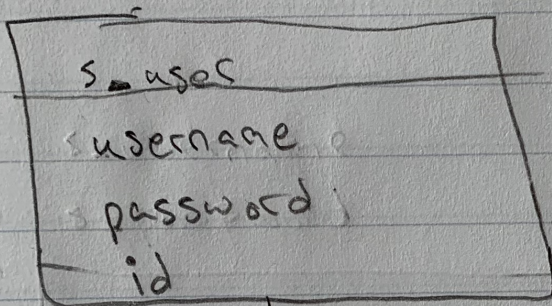 s_user
username
password
id